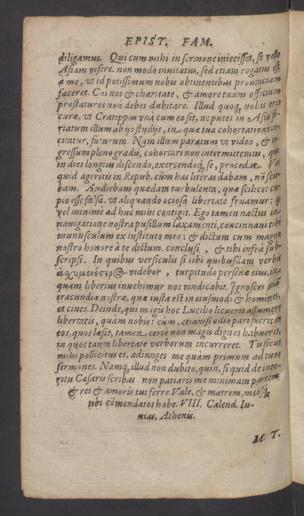 EPIST. FAM.
diligamus. Qui cum mihi in sermone iniecisset, se velle
Asiam visere, non modo inuitatus, sed etiam rogatus est
a me, vt id potissimum nobis obtinentibus prouinciam
faceret. Cui nos & charitate, & amore tuum officium
præstaturos non debes dubitare. Illud quoq, nobis erit
curæ, vt Cratippus vna cum eo sit, ne putes in Asia fe-
riatum illum ab iis studiis, in quæ tua cohortatione
citatur, futurum. Nam illum paratum vt video, &
gressum pleno gradu, cohortari non intermittemus, quo
in dies longius discendo, exercendoq́, se, procedat. Vos
quid ageritis in Repub. cùm has literas dabam, nō scie-
bam. Audiebam quædam turbulenta, quæ scilicet cu-
pio esse falsa, vt aliquando ociosa libertate fruamur:
vel minimè ad huc mihi contigit. Ego tamen nactus in
nauigatione nostra pusillum laxamenti, concinnaui tibi
munusculum ex instituto meo: & dictum cum magno
nostro honore à te dictum, conclusi, & tibi infrà sub-
scripsi. In quibus versiculis si tibi quibusdam verbis
videbor, turpitudo personæ eius, in
quam liberius inuehimur nos vindicabit. Ignosces etiam
iracundiæ nostræ, quæ iusta est in eiusmodi & homines,
et ciues. Deinde, qui magis hoc Lucilio licuerit assumere
libertatis, quàm nobis? cum, etiamsi odio pari fuerit in
eos, quos læsit, tamen certè non magis dignos habuerit,
in quos tanta libertate verborum incurreret. Tu sicut
mihi pollicitus es, adiunges me quàm primum ad tuos
sermones. Namq, illud non dubito, quin, si quid de inte-
ritu Cæsaris scribas non patiaris me minimam partem
& rei & amoris tui ferre. Vale, & matrem, meosq́;
tibi cōmendatos habe. VIII. Calend. Iu-
nias, Athenis.
M. T.